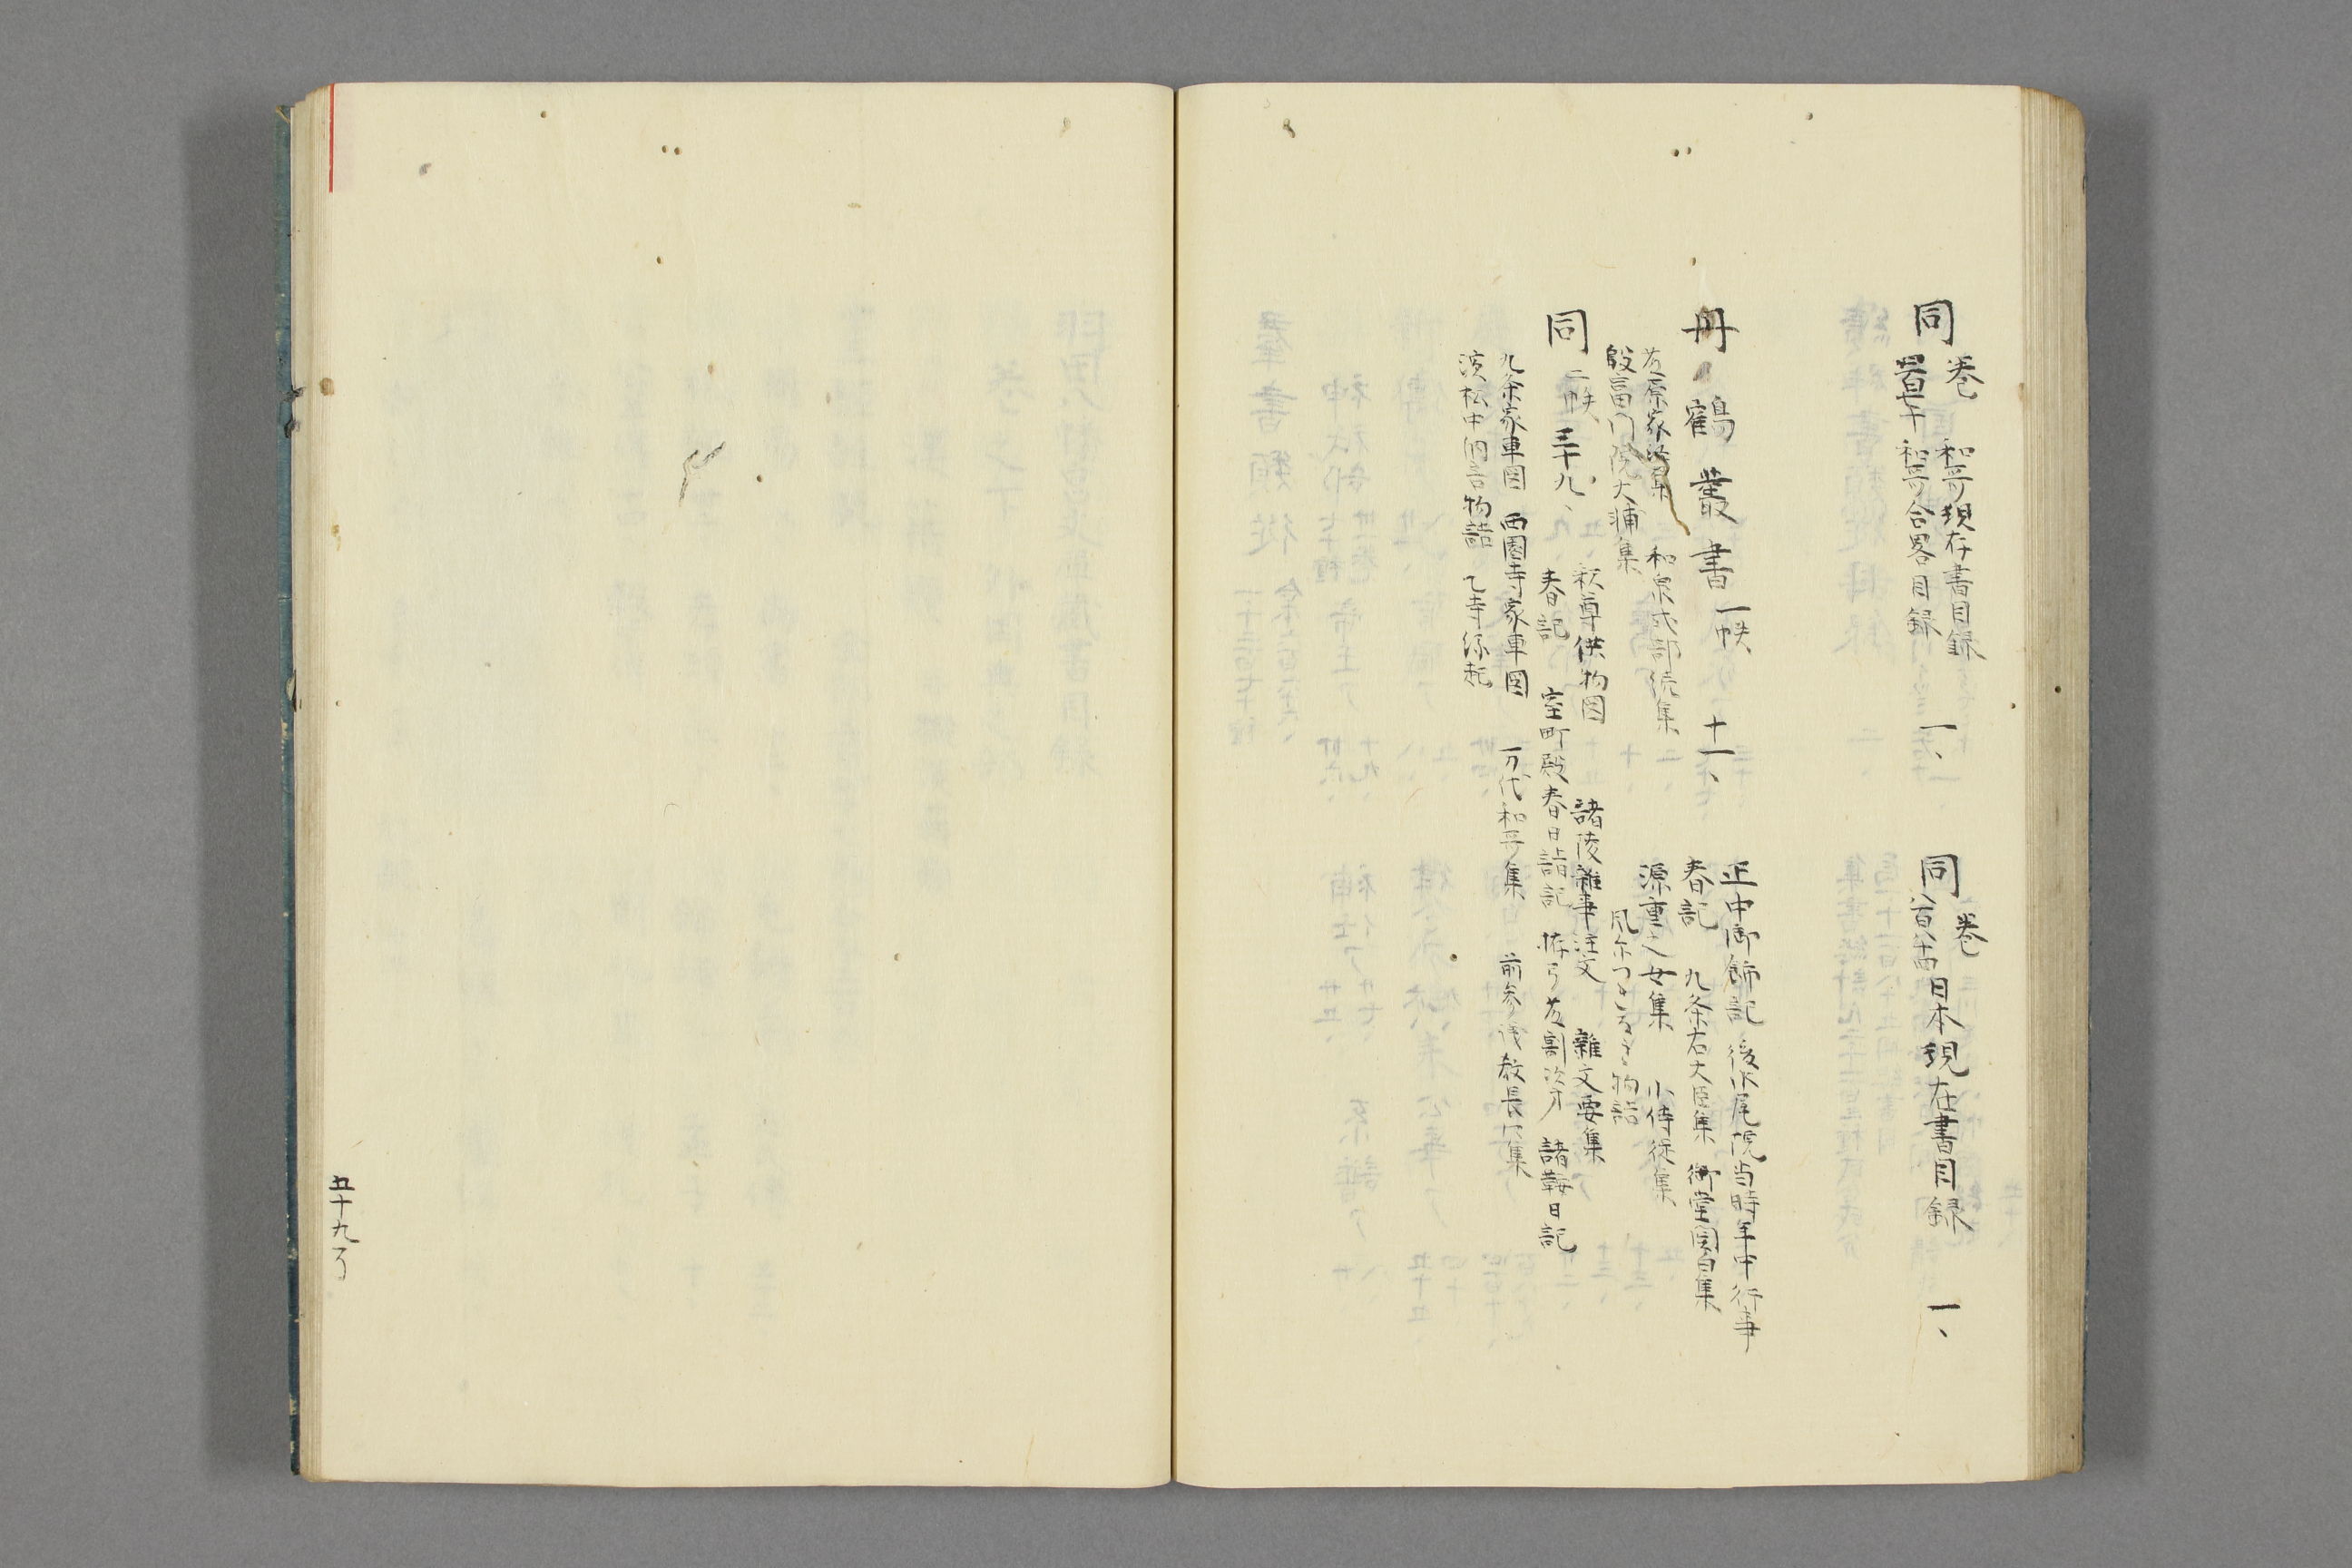 同 巻
和哥現存書目録
和哥合略目録 一、
同 巻
八百八十四 日本現在書目録 一、
丹鶴叢書 一帙 十一、
正中御餝記 後水尾院当時年中行事
春記 九条右大臣集 御堂関白集
藤原家 集 和泉式部続集 源重之女集 小侍従集
殷富門院大輔集 風につれなき物語
同 二帙 三十九、
釈尊供物図 諸陵雑事注文 雑文要集
春記 室町殿春日詣記 諸鞍日記
九条家車図 西園寺家車図 万代和哥集 前参議教長卿集
浜松中納言物語 乙寺縁起
五十九了